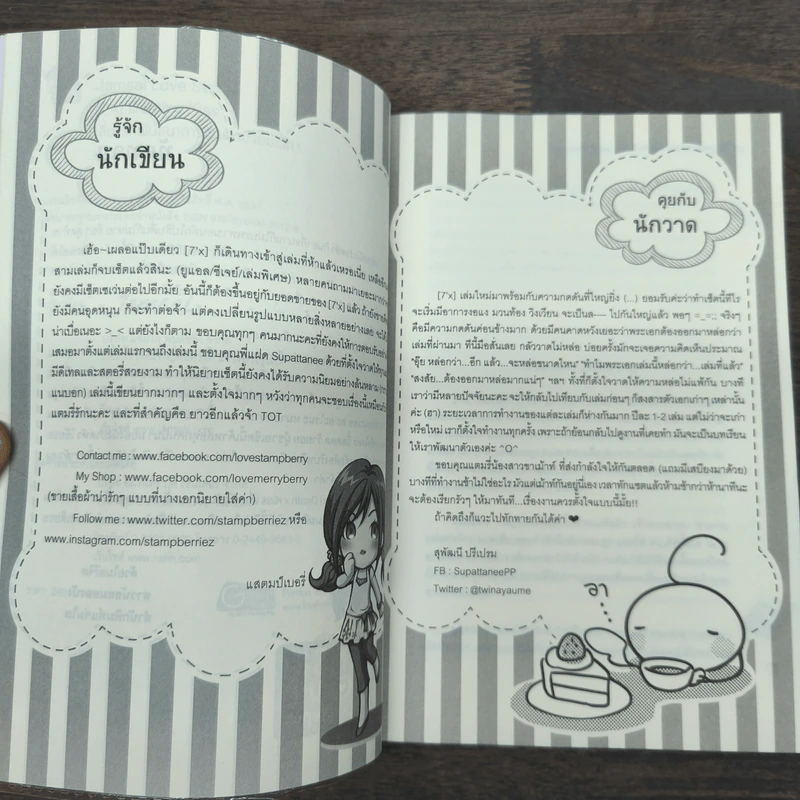 รู้จัก
นักเขียน
เฮ้อ~เผลอแป๊บเดียว [7'x] ก็เดินทางเข้าสู่เล่มที่ห้าแล้วเหรอเนี่ย เหลืออีก
สามเล่มก็จบเซ็ตแล้วสินะ (ยูแอล/ซีเจย์/เล่มพิเศษ) หลายคนถามมาเยอะมากว่า
ยังคงมีเซ็ตเซเว่นต่อไปอีกมั้ย อันนี้ก็ต้องขึ้นอยู่กับยอดขายของ [7'x] แล้ว ถ้ายัง
ยังมีคนอุดหนุน ก็จะทำต่อจ้า แต่คงเปลี่ยนรูปแบบหลายสิ่งหลายอย่างเลย จะได้
น่าเบื่อเนอะ >_< แต่ยังไงก็ตาม ขอบคุณทุกๆ คนมากนะคะที่ยังคงให้การตอบรับ
เสมอมาตั้งแต่เล่มแรกจนถึงเล่มนี้ ขอบคุณพี่แฝด Supattanee ด้วยที่ตั้งใจวาดให้
มีดีเทลและสตอรี่สวยงาม ทำให้นิยายเซ็ตนี้ยังคงได้รับความนิยมอย่างล้นหลาม
แนบอก) เล่มนี้เขียนยากมากๆ และตั้งใจมากๆ หวังว่าทุกคนจะชอบเรื่องนี้เหมือน
แตมรี่รักนะคะ และที่สำคัญคือ ยาวอีกแล้วจ้า TOT
Contact me : www.facebook.com/lovestampberry
My Shop : www.facebook.com/lovemerryberry
(ขายเสื้อผ้าน่ารักๆ แบบที่นางเอกนิยายใส่ค่า)
Follow me : www.twitter.com/stampberriez หรือ
www.instagram.com/stampberriez
แสตมป์เบอรี่
คุยกับ
นักวาด
[7'x] เล่มใหม่มาพร้อมกับความกดดันที่ใหญ่ยิ่ง (...) ยอมรับค่ะว่าทำเซ็ตนี้ทีไร
จะเริ่มมีอาการงอแง มวนท้อง วิงเวียน จะเป็นล---- ไปกันใหญ่แล้ว พอๆ =_=;; จริงๆ
คือมีความกดดันค่อนข้างมาก ด้วยมีคนคาดหวังเยอะว่าพระเอกต้องออกมาหล่อกว่า
เล่มที่ผ่านมา ที่นี้มือสั่นเลย กลัววาดไม่หล่อ บ่อยครั้งมักจะเจอความคิดเห็นประมาณ
"อุ๊ย หล่อกว่า...อีก แล้ว...จะหล่อขนาดไหน" "ทำไมพระเอกเล่มนี้หล่อกว่า...เล่มที่แล้ว"
"สงสัย...ต้องออกมาหล่อมากแน่ๆ" ฯลฯ ทั้งที่ก็ตั้งใจวาดให้ความหล่อไม่แพ้กัน บางที
เราว่ามีหลายปัจจัยนะคะ จะให้กลับไปเทียบกับเล่มก่อนๆ ก็สงสารตัวเอกเก่าๆ เหล่านั้น
ค่ะ (ฮา) ระยะเวลาการทำงานของแต่ละเล่มก็ห่างกันมาก ปีละ 1-2 เล่ม แต่ไม่ว่าจะเก่า
หรือใหม่ เราก็ตั้งใจทำงานทุกครั้ง เพราะถ้าย้อนกลับไปดูงานที่เคยทำ มันจะเป็นบทเรียน
ให้เราพัฒนาตัวเองค่ะ ^O^
ขอบคุณแตมรี่น้องสาวขาเม้าท์ ที่ส่งกำลังใจให้กันตลอด (แถมมีเสบียงมาด้วย)
บางทีที่ทำงานช้าก็ไม่ใช่อะไร มัวแต่เม้าท์กันอยู่นี่เอง เวลาทักแชตแล้วห้ามช้ากว่าห้านาทีนะ
จะต้องเรียกรัวๆ ให้มาทันที...เรื่องงานควรตั้งใจแบบนี้มั้ย!!
ถ้าคิดถึงก็แวะไปทักทายกันได้ค่า ❤
สุพัฒนี ปรีเปรม
FB : SupattaneePP
Twitter : @twinayaume
อา